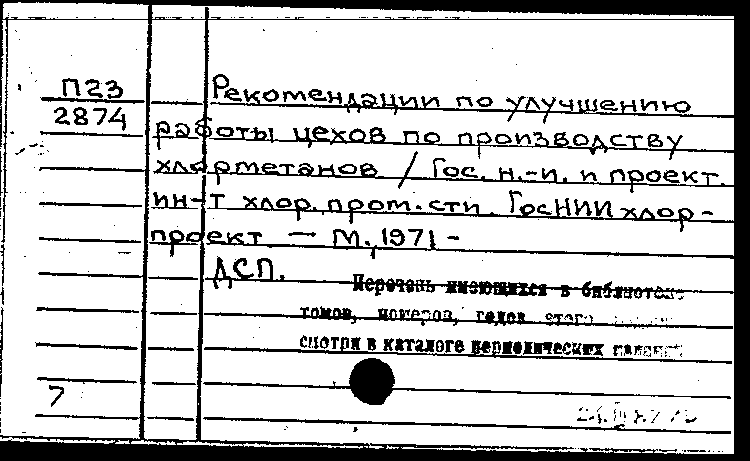 П23
2874
Рекомендации по улучшению
работы цехов по производству
хлорметанов / Гос. н.-и. и проект.
ин-т хлор. пром-сти. ГосНИИхлор-
проект — М., 1971 -
ДСП.
Перечень имеющихся в библиотеке
томов, номеров, годов этого
смотри в каталоге периодических изданий
7